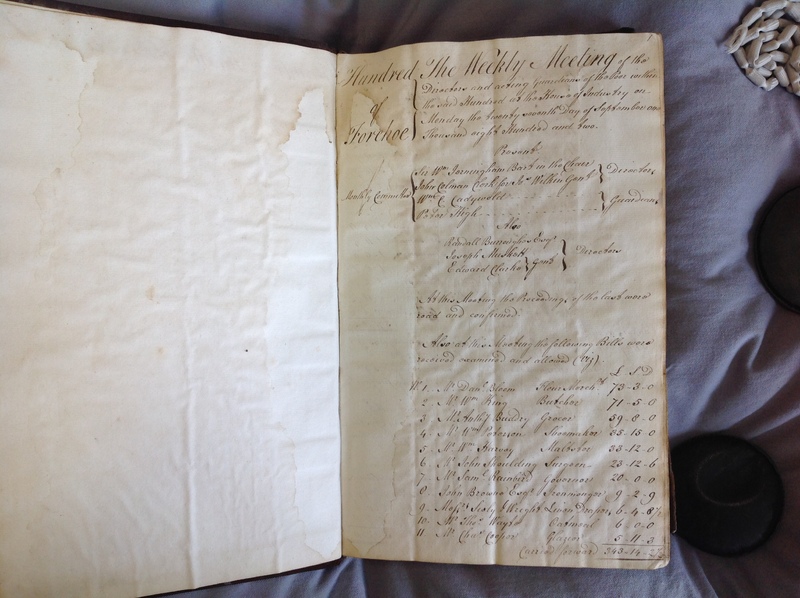 1
Hundred
of
Forehoe
The Weekly Meeting of the
Directors and acting Guardians of the Poor within
the said Hundred at the House of Industry on
Monday the twenty seventh Day of September one
Thousand eight Hundred and two.
Present
Monthly Committee
Sir Wm Jerningham Bart in the Chair
John Colman Clerk for Jos Wilkin Gent
Directors
Wm C
Peter High
Guardians
Also
Randall Burroughes Esqr
Joseph Muskett
Edward Clarke
Gent
Directors
At this Meeting the Proceedings of the last were
read and confirmed.
Also at this Meeting the following Bills were
received examined and allowed (Vizt)
£ S D
No 1. Mr Danl Bloom Flour Mercht 73-3-0
2. Mr Wm King Butcher 71-5-0
3. Mr Anthy Buddry Grocer 59-8-0
4. Mr Wm Peterson Shoemaker 35-15-0
5. Mr Wm Harvey Maltster 33-12-0
6. Mr John Shoulding Surgeon 23-12-6
7. Mr Saml Rainbird Governors 20-0-0
8. John Browne Esqr Ironmonger 9-2-9
9. Messrs & Wright Linen Draper 6-4-8½
10. Mr Thos Oatmeal 6-0-0
11. Mr Chas Cooper Glazier 5-11-3
Carried forward 343-14-2½